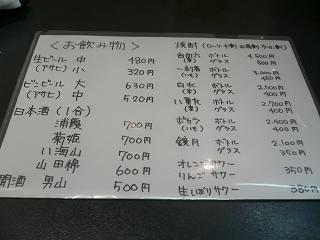 <お飲み物>
生ビール 中 480円
(アサヒ) 小 320円
ビンビール 大 630円
(アサヒ) 中 520円
日本酒(1合)
浦霞 700円
菊姫 700円
い海山 700円
山田錦 600円
開酒 男山 500円
焼酎
ボトル 4,500円
グラス 500円
一刻者 ボトル 3,000円
(いも) グラス 450円
白水 ボトル 2,100円
グラス 400円
ボトル 2,700円
グラス 400円
ボトル 2,400円
(いも) グラス 400円
鏡月 ボトル 2,100円
グラス 350円
オレンジサワー
りんごサワー 350円
生しぼりサワー 380円